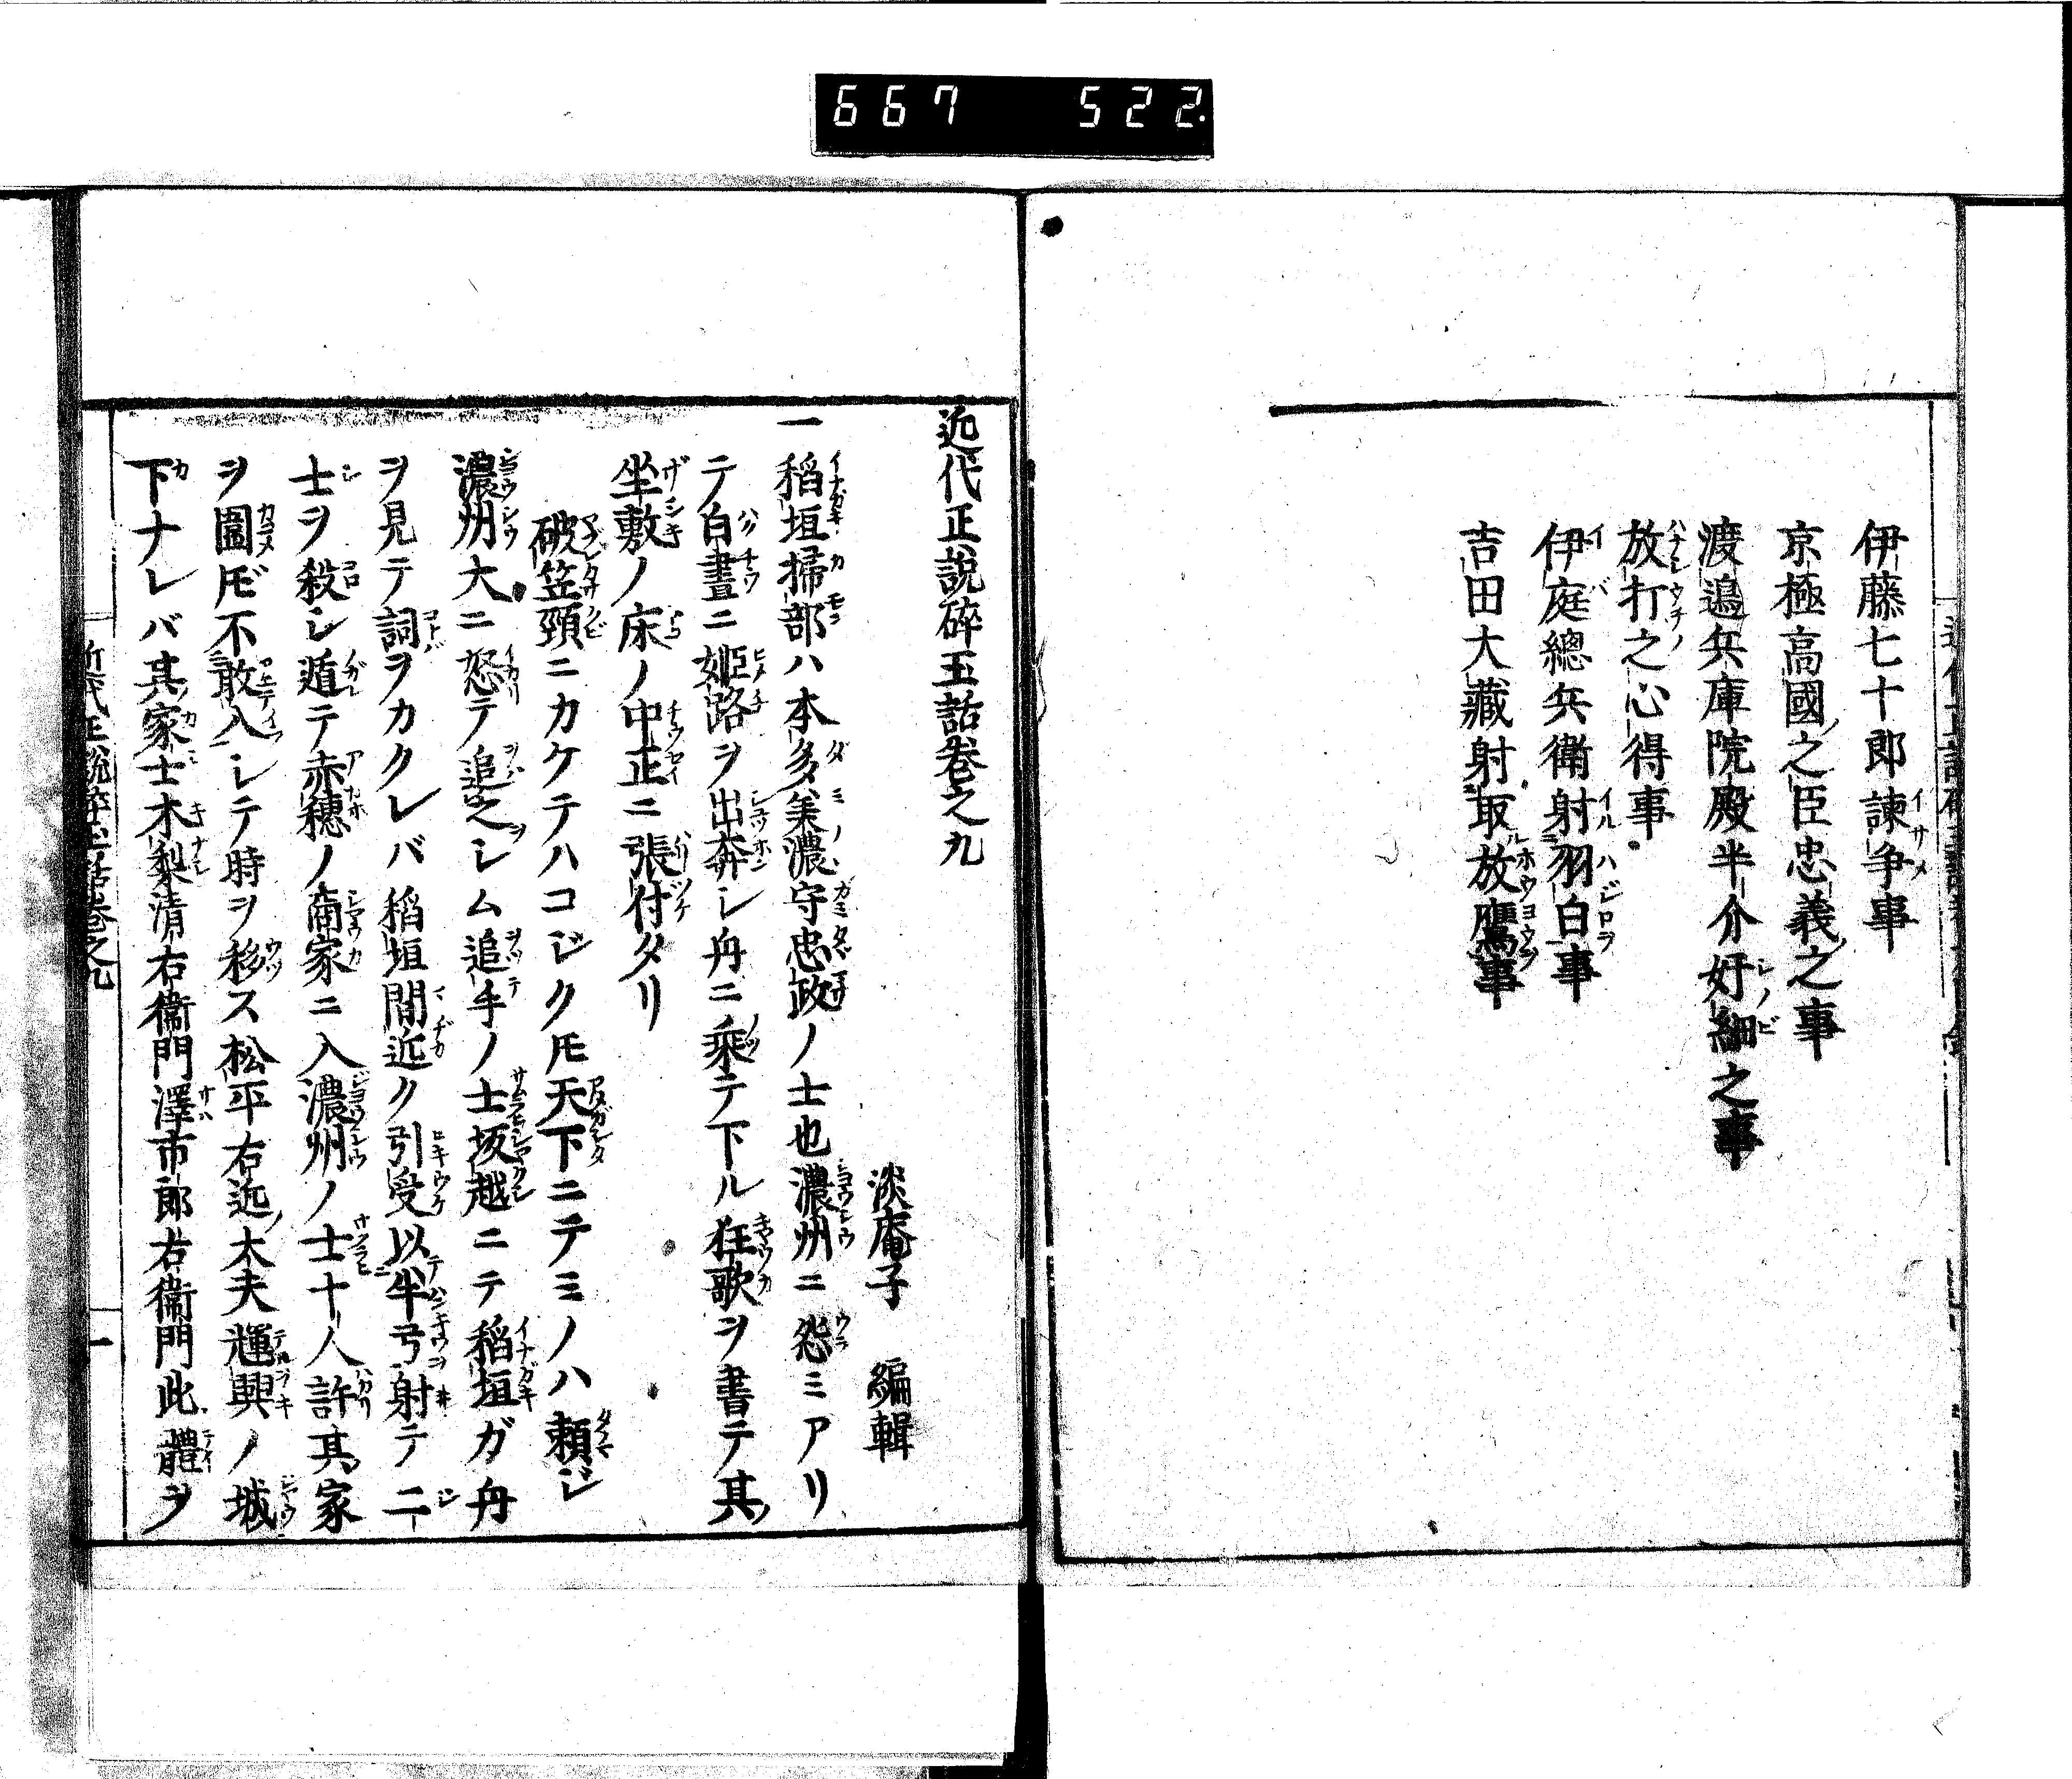 667 522
伊藤七十郎諫争事
京極高國之臣忠義之事
渡邉兵庫院殿半介奸細之事
放打之心得事
伊庭總兵衛射羽白事
吉田大藏射取放鷹事
近代正說碎玉話卷之九
淡庵子 編輯
一稻垣掃部ハ本多美濃守忠政ノ士也濃州ニ怨ミアリ
テ白晝ニ姫路ヲ出奔シ舟ニ乗テ下ル狂歌ヲ書テ其
坐敷ノ床ノ中正ニ張付タリ
破笠頸ニカケテハコジクトモ天下ニテミノハ頼ジ
濃州大ニ怒テ追之シム追手ノ士坂越ニテ稻垣ガ舟
ヲ見テ詞ヲカクレバ稻垣間近ク引受以半弓射テ二
士ヲ殺シ遁テ赤穗ノ商家ニ入濃州ノ士十人許其家
ヲ圍ドモ不敢入シテ時ヲ移ス松平右近太夫輝興ノ城
下ナレバ其家士木梨清右衞門澤市郎右衞門此體ヲ
近代正說碎玉話卷之九
一